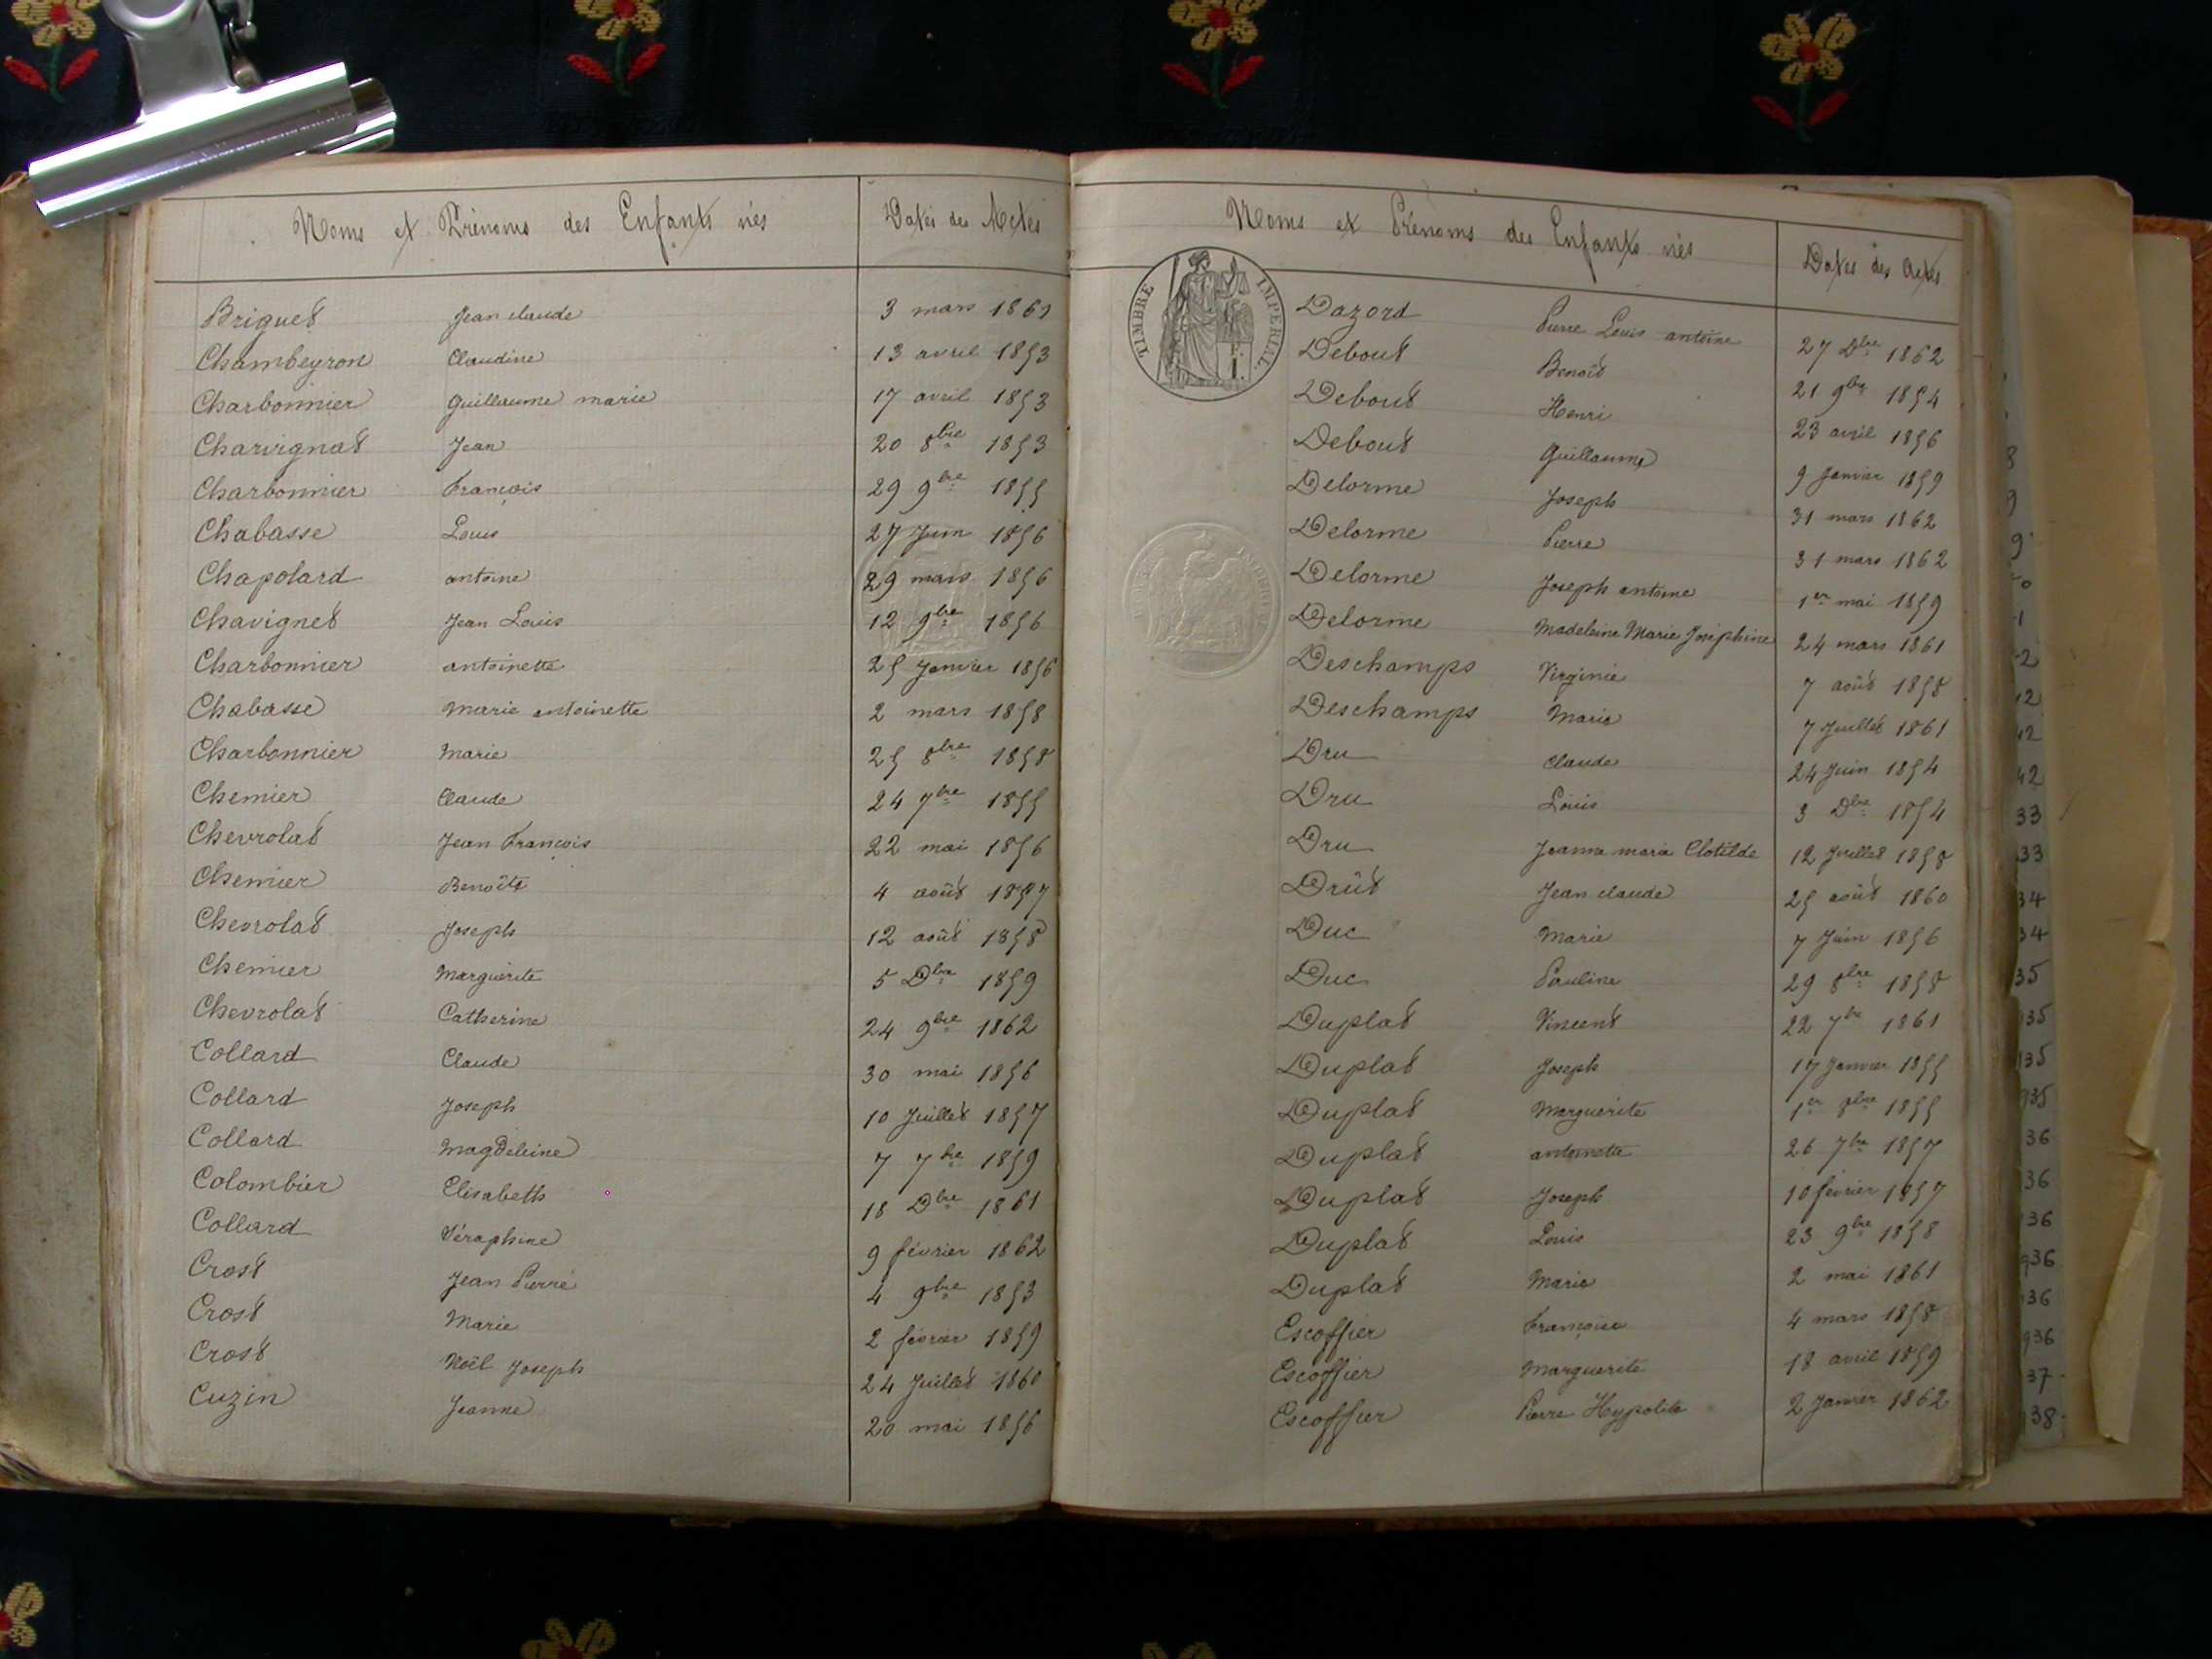 Noms et Prénoms des Enfants nés Dates des Actes
Briguet Jean claude 3 mars 1861
Chambeyron Claudine 13 avril 1853
Charbonnier Guillaume marie 17 avril 1853
Charvignat Jean 20 8bre 1853
Charbonnier François 29 9bre 1855
Chabasse Louis 27 Juin 1856
Chapolard antoine 29 mars 1856
Chavignet Jean Louis 12 9bre 1856
Charbonnier antoinette 25 Janvier 1856
Chabasse Marie antoinette 2 mars 1858
Charbonnier Marie 25 8bre 1858
Chemier Claude 24 7bre 1855
Chevrolat Jean François 22 mai 1856
Chemier Benoîte 4 août 1857
Chevrolat Joseph 12 août 1858
Chemier Marguerite 5 Dbre 1859
Chevrolat Catherine 24 9bre 1862
Collard Claude 30 mai 1856
Collard Joseph 10 Juillet 1857
Collard Magdeleine 7 7bre 1859
Colombier Elisabeth 18 Dbre 1861
Collard Séraphine 9 février 1862
Crost Jean Pierre 4 9bre 1853
Crost Marie 2 février 1859
Crost Noël Joseph 24 Juillet 1860
Cuzin Jeanne 20 mai 1856
Noms et Prénoms des Enfants nés Dates des Actes
TIMBRE IMPERIAL
Dazord Pierre Louis antoine 27 Dbre 1862
Debout Benoît 21 9bre 1854
Debout Henri 23 avril 1856
Debout Guillaume 9 Janvier 1859
Delorme Joseph 31 mars 1862
Delorme Pierre 31 mars 1862
Delorme Joseph antoine 1er mai 1859
Delorme Madeleine Marie Joséphine 24 mars 1861
Deschamps Virginie 7 août 1858
Deschamps Marie 7 Juillet 1861
Dru Claude 24 Juin 1854
Dru Louis 3 Dbre 1854
Dru Jeanne marie Clotilde 12 Juillet 1858
Drût Jean claude 25 août 1860
Duc Marie 7 Juin 1856
Duc Pauline 29 8bre 1858
Duplat Vincent 22 7bre 1861
Duplat Joseph 17 Janvier 1855
Duplat Marguerite 1er 8bre 1855
Duplat antoinette 26 7bre 1857
Duplat Joseph 10 février 1857
Duplat Louis 23 9bre 1858
Duplat Marie 2 mai 1861
Escoffier Françoise 4 mars 1858
Escoffier Marguerite 18 avril 1859
Escoffier Pierre Hypolite 2 Janvier 1862